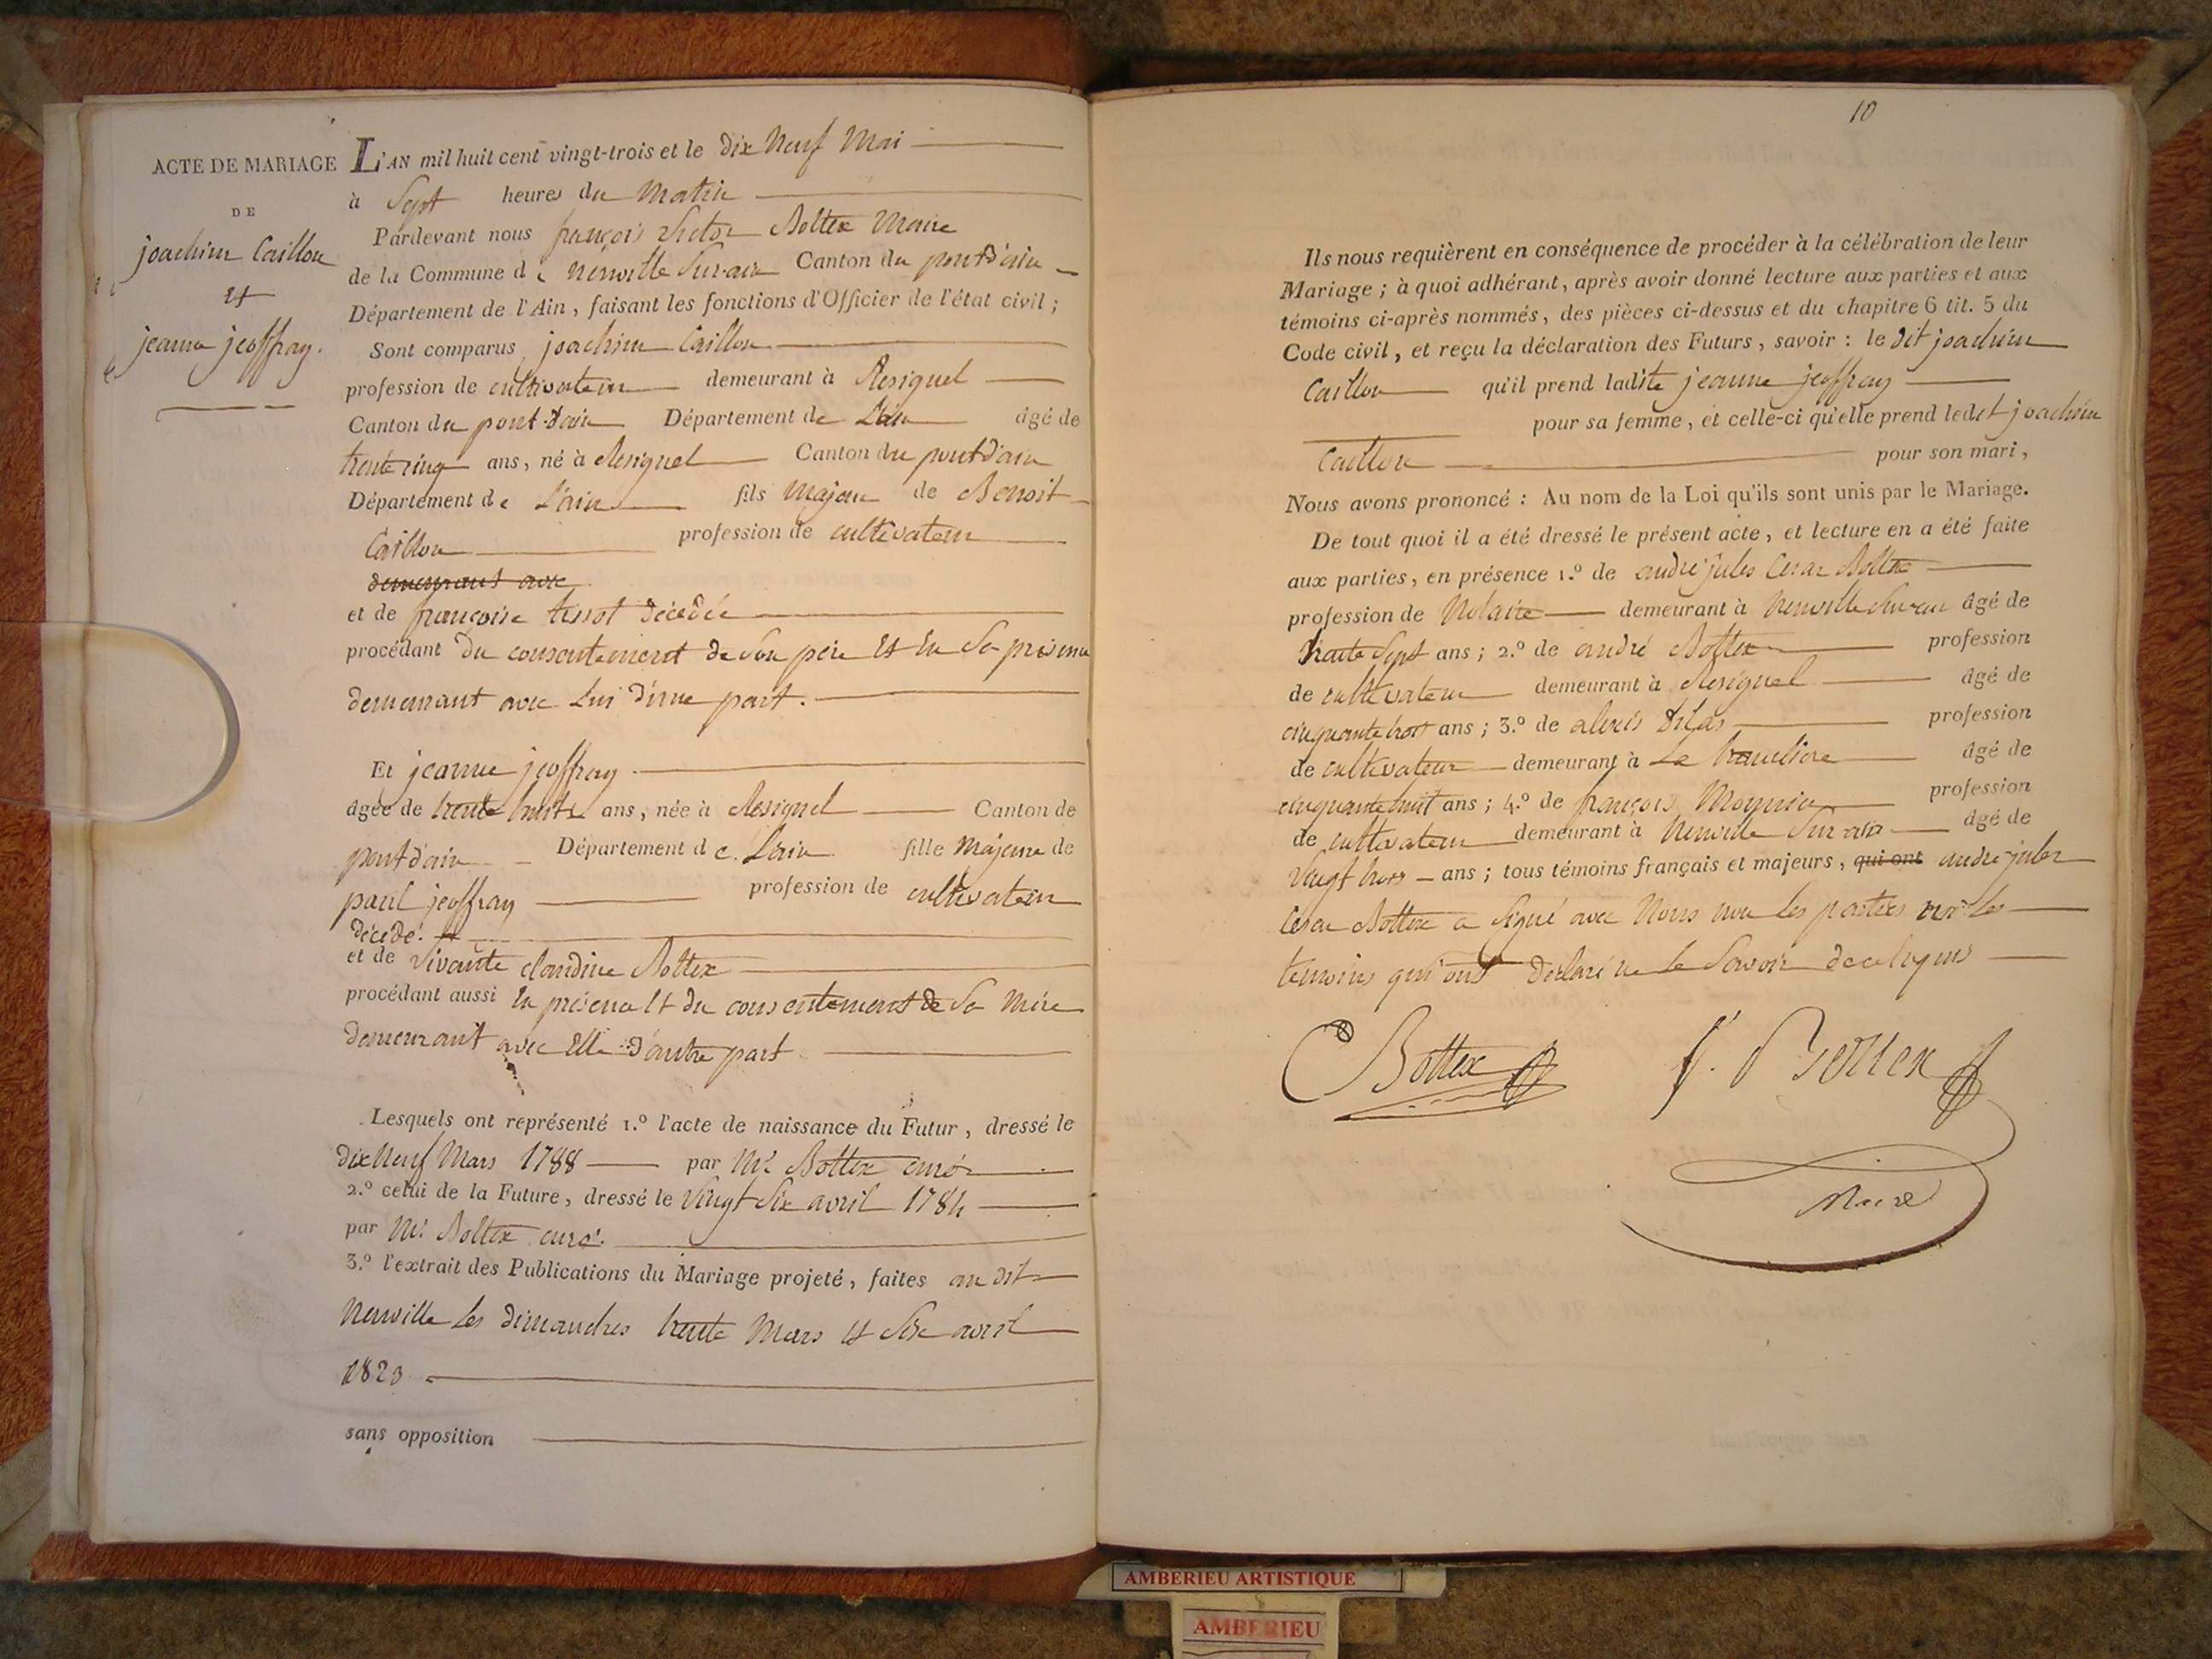 ACTE DE MARIAGE
DE
joachim Caillou
et
jeanne jeoffray.
L'AN mil huit cent vingt-trois et le dix Neuf Mai
à Sept heures du Matin
Pardevant nous françois Victor Bottex Maire
de la Commune de neuville Sur-ain Canton du pontd'ain
Département de l'Ain, faisant les fonctions d'Officier de l'état civil;
Sont comparus joachim Caillou
profession de cultivateur demeurant à Resignel
Canton du pont-d'ain Département de L'ain âgé de
trente cinq ans, né à Resignel Canton du pontd'ain
Département de L'ain fils Majeur de Benoit
Caillou profession de cultivateur
demeurant avec
et de françoise tissot décédée
procédant du consentement de Son père et en Sa présence
demeurant avec Lui d'une part.
Et jeanne jeoffray
âgée de trente huit ans, née à Resignel Canton de
pontd'ain Département de L'ain fille Majeure de
paul jeoffray profession de cultivateur
décédé.
et de Vivante claudine Bottex
procédant aussi en présence et du consentement de Sa Mère
demeurant avec Elle d'autre part
Lesquels ont représenté 1.º l'acte de naissance du Futur, dressé le
dix Neuf Mars 1788 par Mr. Bottex curé
2.º celui de la Future, dressé le Vingt Six avril 1784
par Mr. Bottex curé.
3.º l'extrait des Publications du Mariage projeté, faites au dit
Neuville Les dimanches trente Mars et Six avril
1823
sans opposition
10
Ils nous requièrent en conséquence de procéder à la célébration de leur
Mariage; à quoi adhérant, après avoir donné lecture aux parties et aux
témoins ci-après nommés, des pièces ci-dessus et du chapitre 6 tit. 5 du
Code civil, et reçu la déclaration des Futurs, savoir: le dit joachim
Caillou qu'il prend ladite jeanne jeoffray
pour sa femme, et celle-ci qu'elle prend ledit joachim
Caillou pour son mari,
Nous avons prononcé: Au nom de la Loi qu'ils sont unis par le Mariage.
De tout quoi il a été dressé le présent acte, et lecture en a été faite
aux parties, en présence 1.º de andré jules Cesar Bottex
profession de Notaire demeurant à Neuville Sur ain âgé de
trente Sept ans; 2.º de andré Bottex profession
de cultivateur demeurant à Resignel âgé de
cinquante trois ans; 3.º de profession
de cultivateur demeurant à La trancliere âgé de
cinquante huit ans; 4.º de françois profession
de cultivateur demeurant à Neuville Sur ain âgé de
Vingt trois ans; tous témoins français et majeurs, qui ont andré jules
Cesar Bottex a Signé avec Nous non les parties ni les
temoins qui ont déclaré ne Le Savoir de ce
Bottex
V. Bottex
Maire
AMBERIEU ARTISTIQUE
AMBERIEU